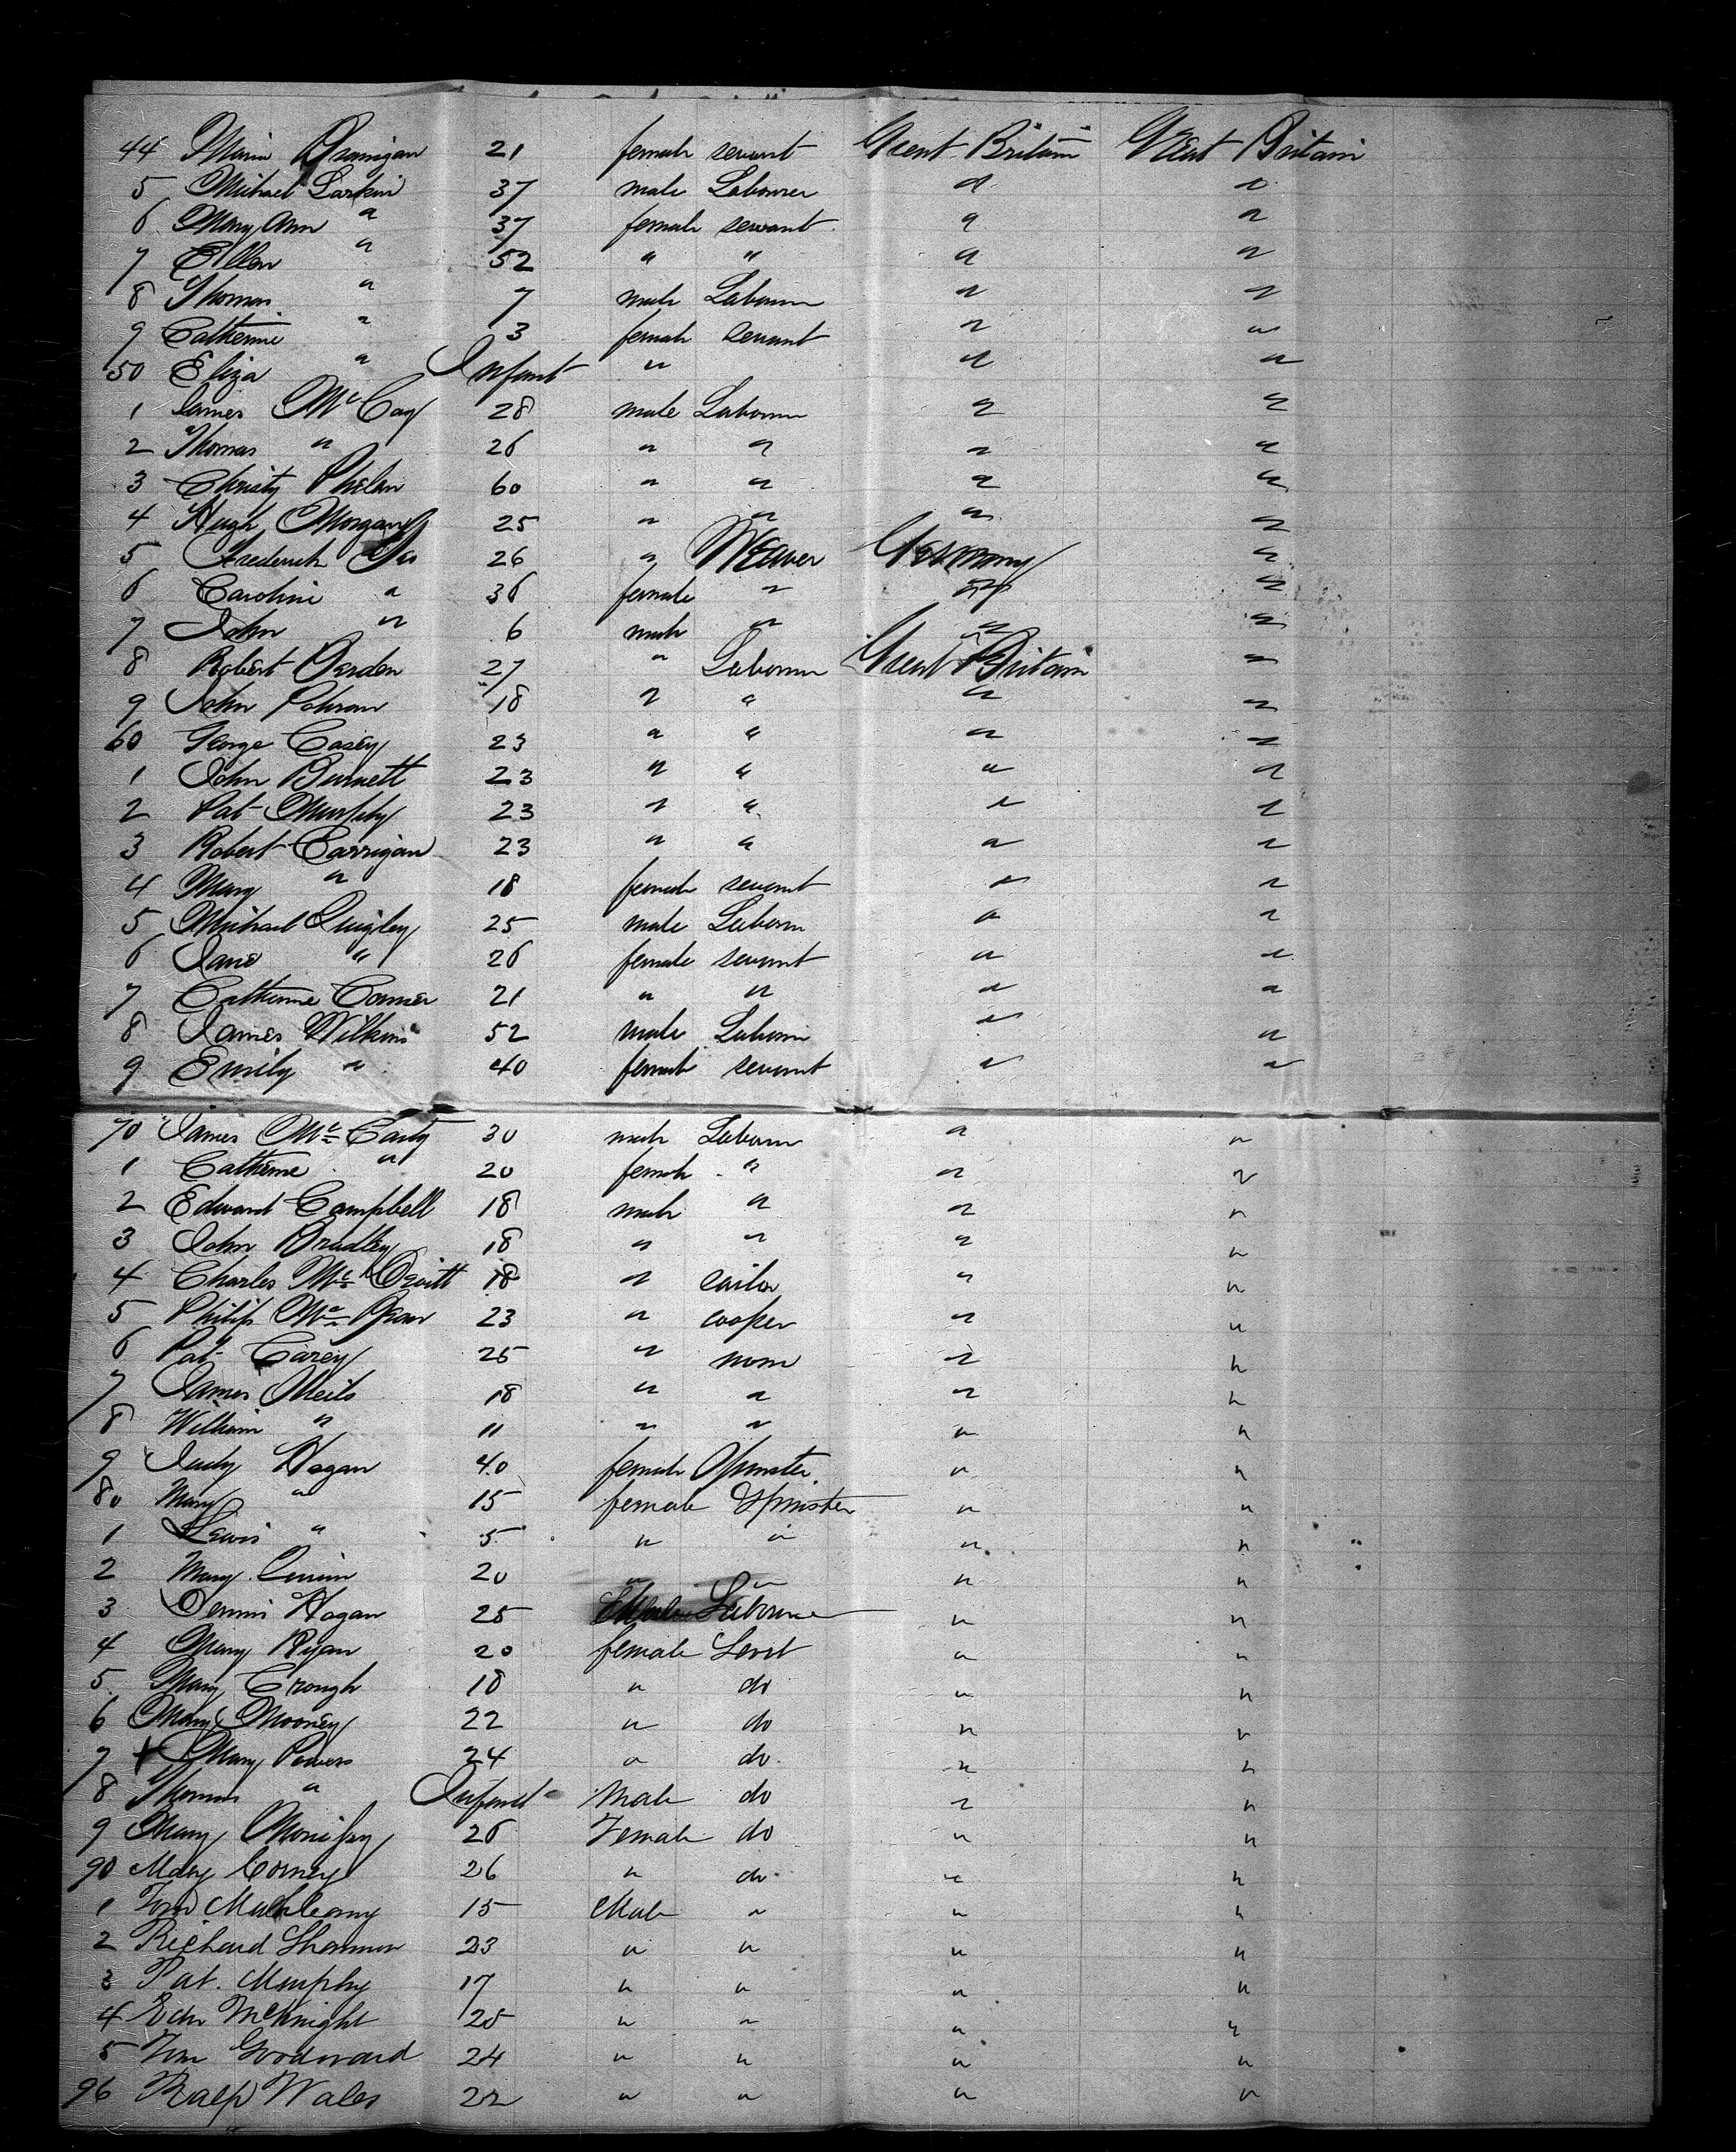 44 Maria Branigan 21 female servant Great Britain Great Britain
5 Michael Larkin 37 male Labourer " "
6 Mary Ann " 37 female servant " "
7 Ellen " 52 " " " "
8 Thomas " 7 male Labourer " "
9 Catherine " 3 female servant " "
50 Eliza " Infant " " "
1 James McCay 28 male Labourer " "
2 Thomas " 26 " " " "
3 Christy Phelan 60 " " " "
4 Hugh Morgan 25 " " " "
5 Frederick 26 " Weaver Germany "
6 Caroline " 36 female " " "
7 John " 6 male " " "
8 Robert 27 " Labourer Great Britain "
9 John 18 " " " "
60 George Casey 23 " " " "
1 John Burnett 23 " " " "
2 Pat Murphy 23 " " " "
3 Robert Carrigan 23 " " " "
4 Mary " 18 female servant " "
5 Michael Quigley 25 male Labour " "
6 Jane " 26 female servant " "
7 Catherine Conner 21 " " " "
8 James Wilkins 52 male Labour " "
9 Emily " 40 female servant " "
70 James McCarty 30 male Labour " "
1 Catherine " 20 female " " "
2 Edward Campbell 18 male " " "
3 John Bradley 18 " " " "
4 Charles McDevitt 18 " " "
5 Philip 23 " cooper " "
6 Pat Carey 25 " none " "
7 James Meils 18 " " " "
8 William " 11 " " " "
9 Judy Hogan 40 female Spinster " "
80 Mary " 15 female Spinster " "
1 Lewis " 5 " " " "
2 Mary 20 " " " "
3 Dennis Hogan 25 Male Labourer " "
4 Mary Ryan 20 female Servt " "
5 Mary Crough 18 " do " "
6 Mary Mooney 22 " do " "
7 + Mary Powers 24 " do " "
8 Thomas " Infant Male do " "
9 Mary 26 Female do " "
90 Mary Corney 26 " do " "
1 15 Male " " "
2 Richard Shannon 23 " " " "
3 Pat. Murphy 17 " " " "
4 Edw McKnight 25 " " " "
5 Goodward 24 " " " "
96 Ralp Wales 22 " " " "